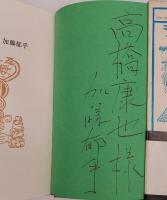 加藤郁乎
高橋康也様
加藤郁乎